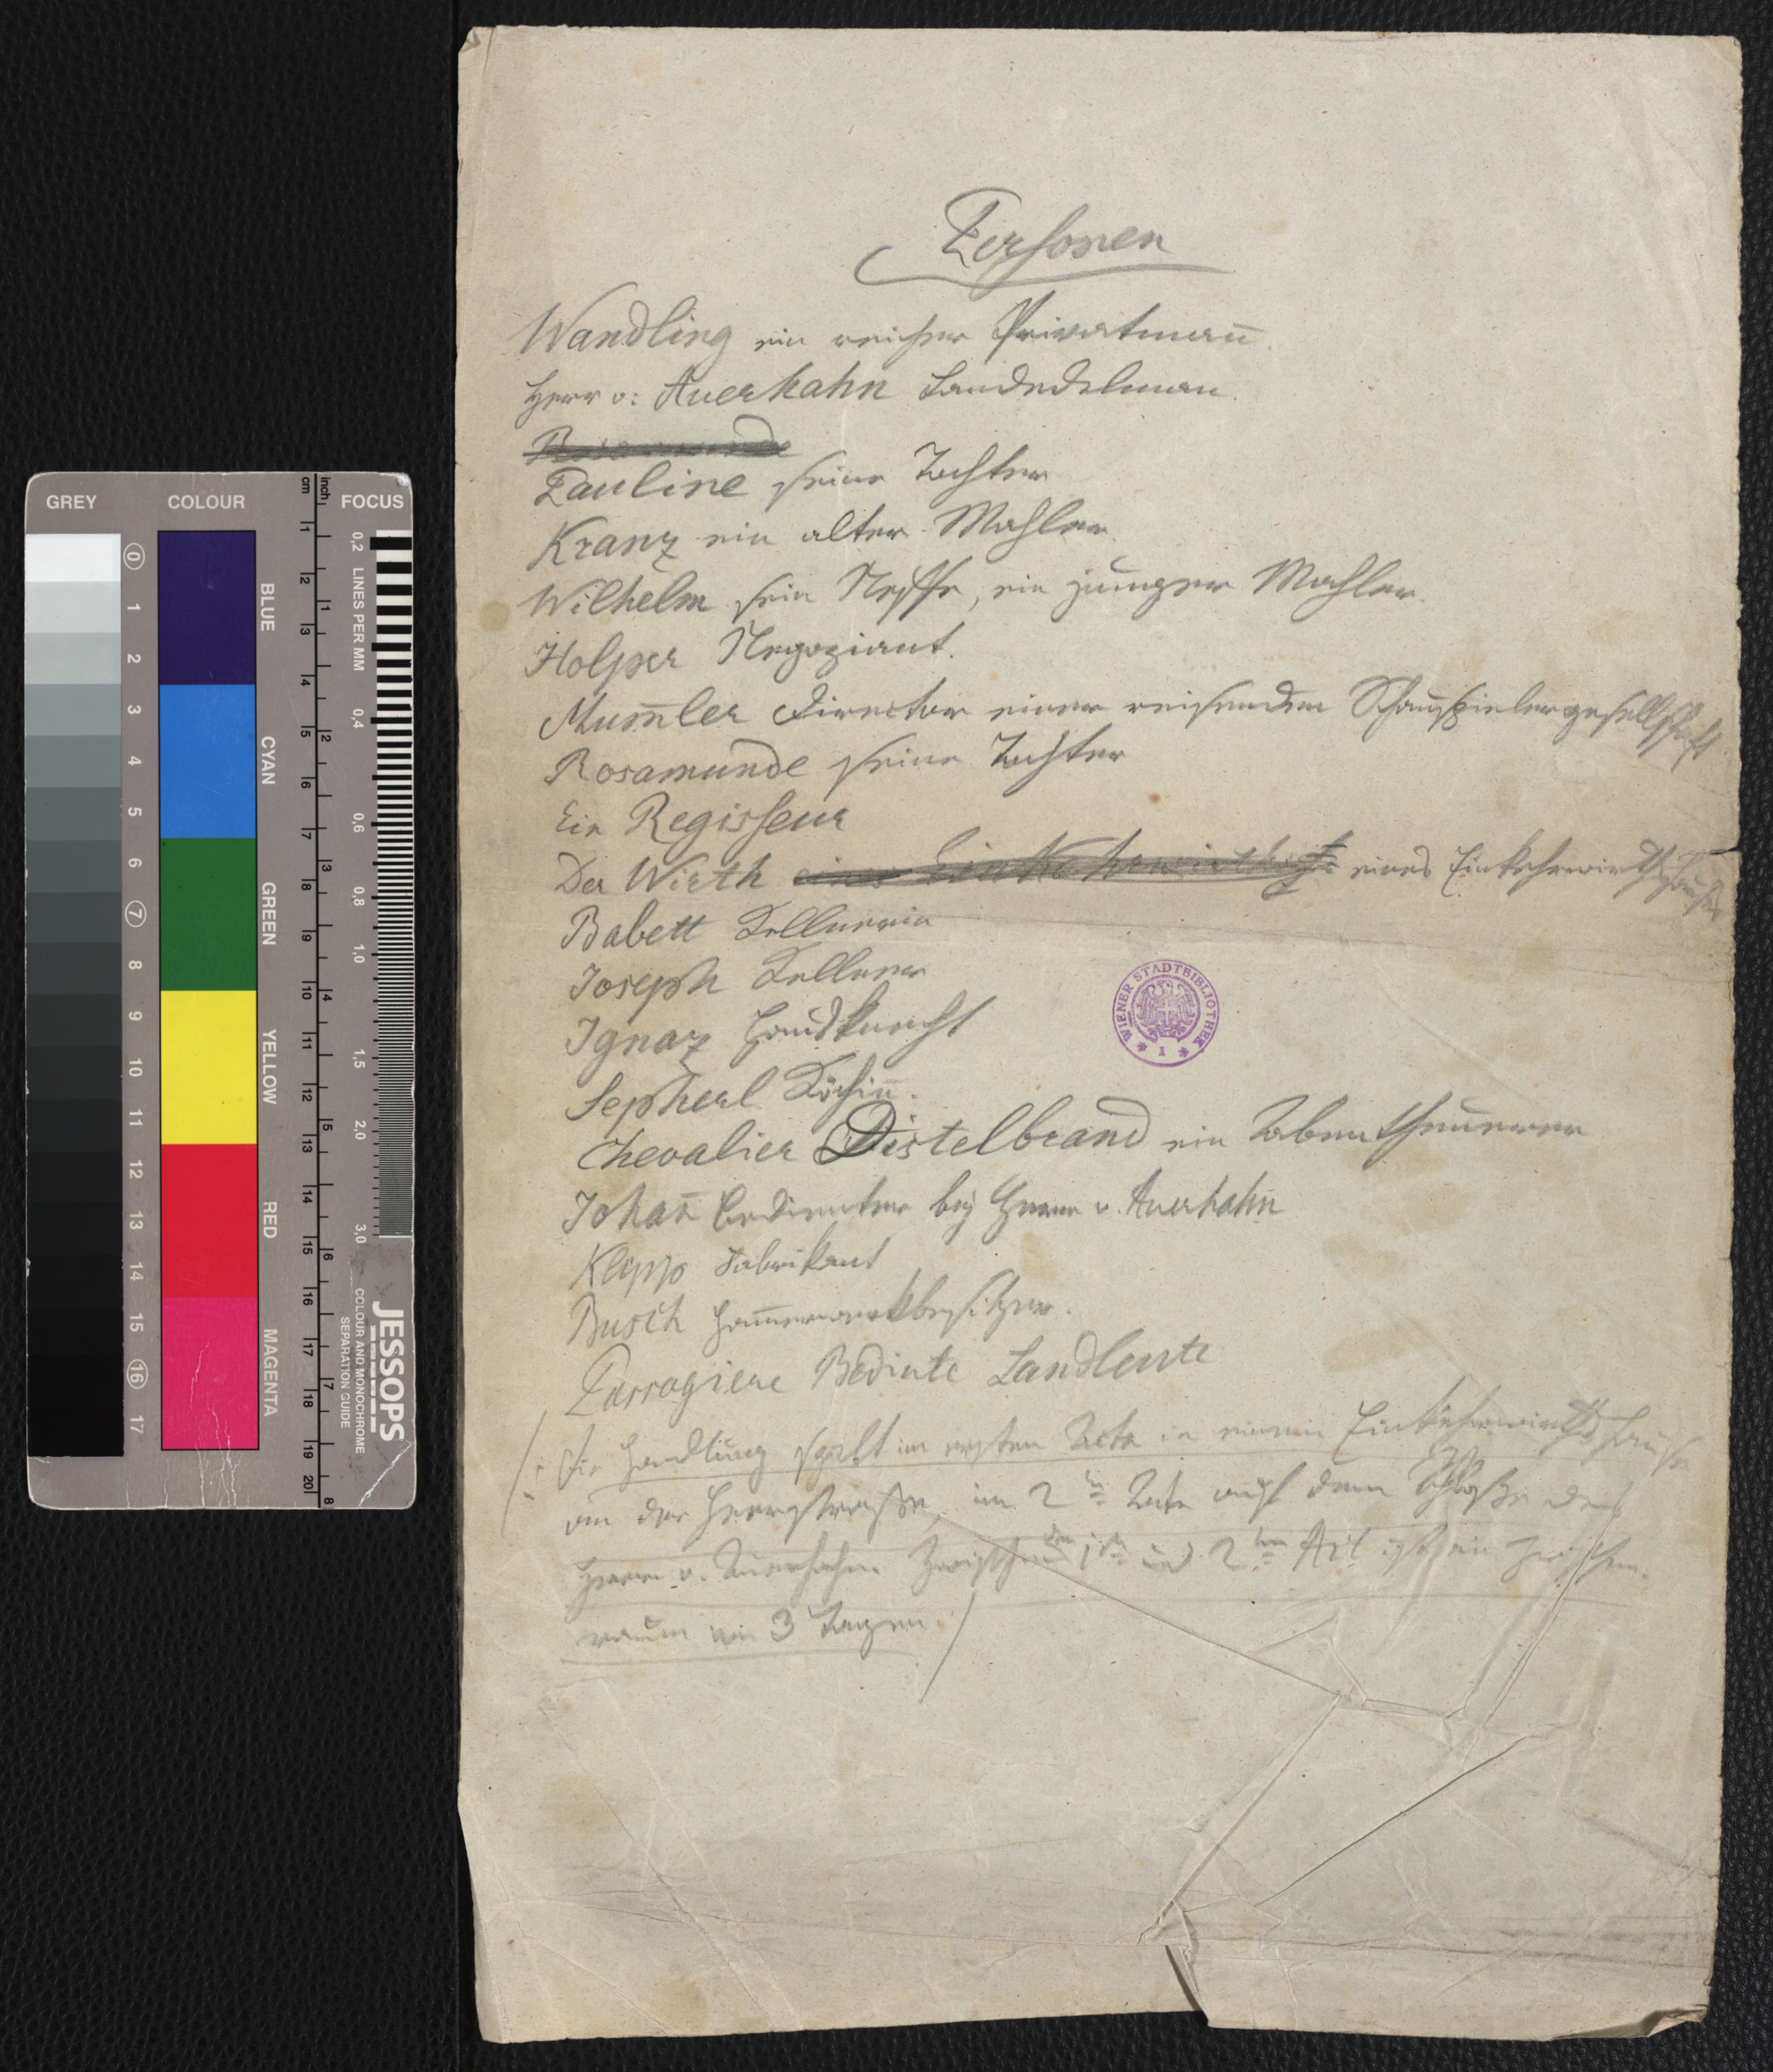 GREY
COLOUR
FOCUS
cm
inch
0
1
2
3
4
5
6
7
8
9
10
11
12
13
14
15
16
17
BLUE
CYAN
GREEN
YELLOW
RED
MAGENTA
1
2
3
4
5
6
7
8
9
10
11
12
13
14
15
16
17
18
19
20
1
2
3
4
5
6
7
8
0,2
LINES PER MM
0,4
0,6
0,8
1,0
1,5
2,0
3,0
JESSOPS
COLOUR AND MONOCHROME
SEPARATION GUIDE
Personen
Wandling ein reicher Privatman̅.
Herr v: Auerhahn Landedelman.
Rosamunde
Pauline seine Tochter
Kranz ein alter Mahler.
Wilhelm sein Neffe, ein junger Mahler.
Holper Negoziant.
Mum̅ler Director einer reisenden Schauspielergesellschaft
Rosamunde seine Tochter
Ein Regisseur
Der Wirth eines Einkehrwirthshauses
Babett Kellnerin
Joseph Kellner
Ignaz Hausknecht
Sepherl Köchin̅.
Chevalier Distelbrand ein Abentheuerer
Johan̅ Bedienter bey Herrn v. Auerhahn
Klepp Fabrikant
Busch Ham̅erwerkbesitzer.
Passagiere Bediente Landleute
/: Die Handlung spielt im ersten Acte in einem Einkehrwirthshause
an der Heerstraße, im 2ten Acte auf dem Schloße des
Herrn v. Auerhahn. Zwischen dem 1ten und 2ten Act ist ein Zwischen-
raum von 3 Tagen. /
WIENER STADTBIBLIOTHEK
1